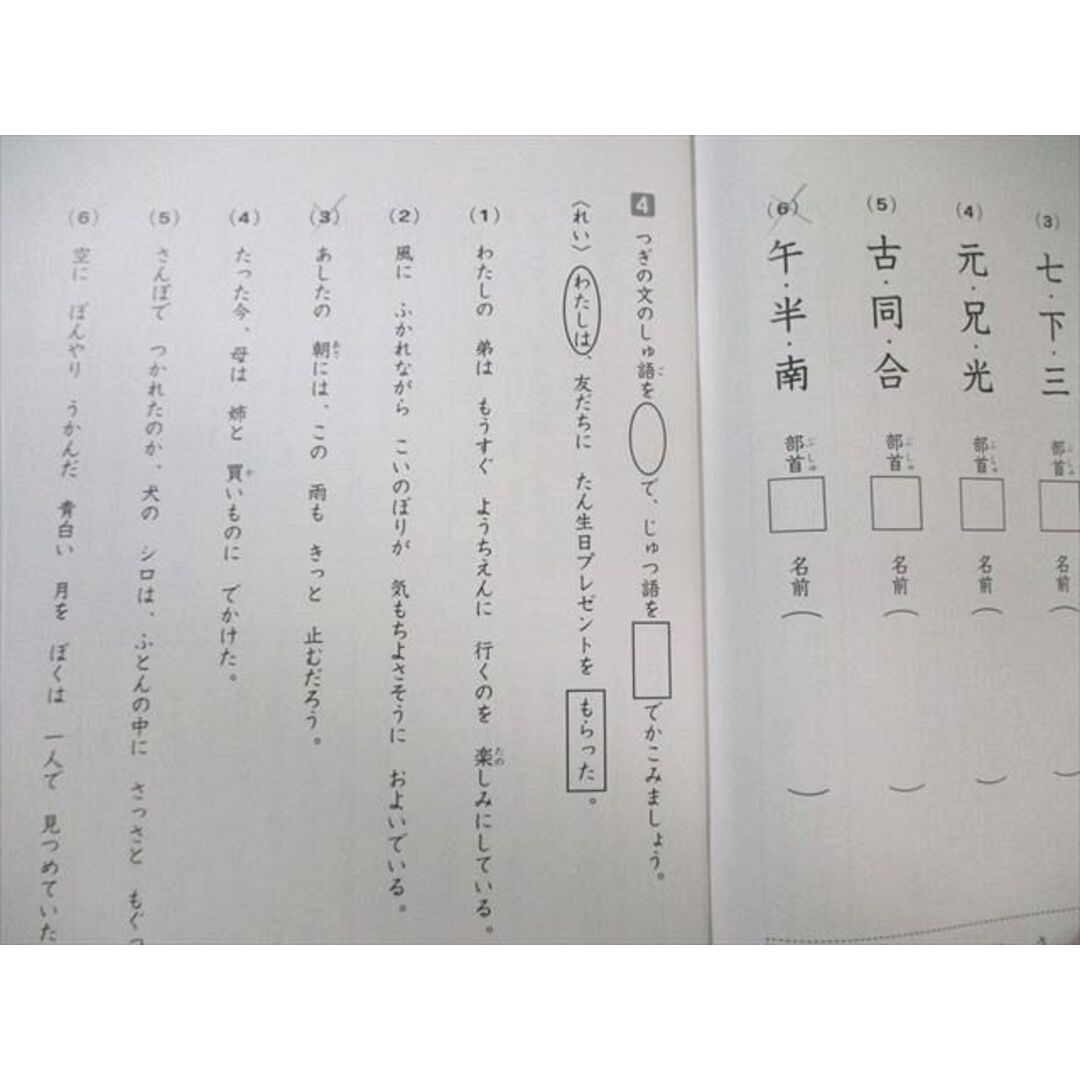 (3) 七・下・三 部首 名前 ( )
(4) 元・兄・光 部首 名前 ( )
(5) 古・同・合 部首 名前 ( )
(6) 午・半・南 部首 名前 ( )
4 つぎの文のしゅ語を で、じゅつ語を でかこみましょう。
〈れい〉 わたしは、友だちに たん生日プレゼントを もらった。
(1) わたしの 弟は もうすぐ ようちえんに 行くのを 楽しみにしている。
(2) 風に ふかれながら こいのぼりが 気もちよさそうに およいでいる。
(3) あしたの 朝には、この 雨も きっと 止むだろう。
(4) たった今、母は 姉と 買いものに でかけた。
(5) さんぽで つかれたのか、犬の シロは、ふとんの中に さっさと もぐっ
(6) 空に ぼんやり うかんだ 青白い 月を ぼくは 一人で 見つめていた